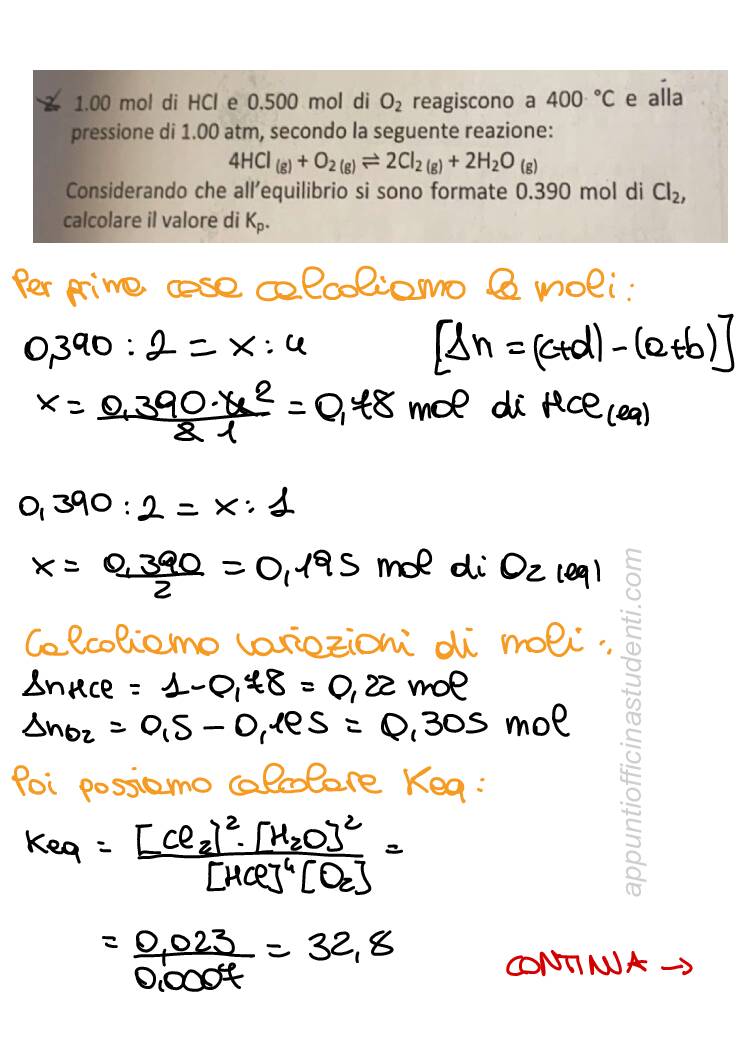 2 1.00 mol di HCl e 0.500 mol di O₂ reagiscono a 400 °C e alla
pressione di 1.00 atm, secondo la seguente reazione:
4HCl (g) + O₂ (g) ⇌ 2Cl₂ (g) + 2H₂O (g)
Considerando che all'equilibrio si sono formate 0.390 mol di Cl₂,
calcolare il valore di Kₚ.
Per prima cosa calcoliamo le moli:
0,390 : 2 = x : 4 [Δn = (c+d) - (a+b)]
x = 0,390 · 4 2 / 2 1 = 0,78 mol di HCl (eq)
0,390 : 2 = x : 1
x = 0,390 / 2 = 0,195 mol di O₂ (eq)
Calcoliamo variazioni di moli:
Δn HCl = 1 - 0,78 = 0,22 mol
Δn O₂ = 0,5 - 0,195 = 0,305 mol
Poi possiamo calcolare Keq:
Keq = [Cl₂]² · [H₂O]² / [HCl]⁴ [O₂] =
= 0,023 / 0,0007 = 32,8
CONTINUA →
appuntiofficinastudenti.com